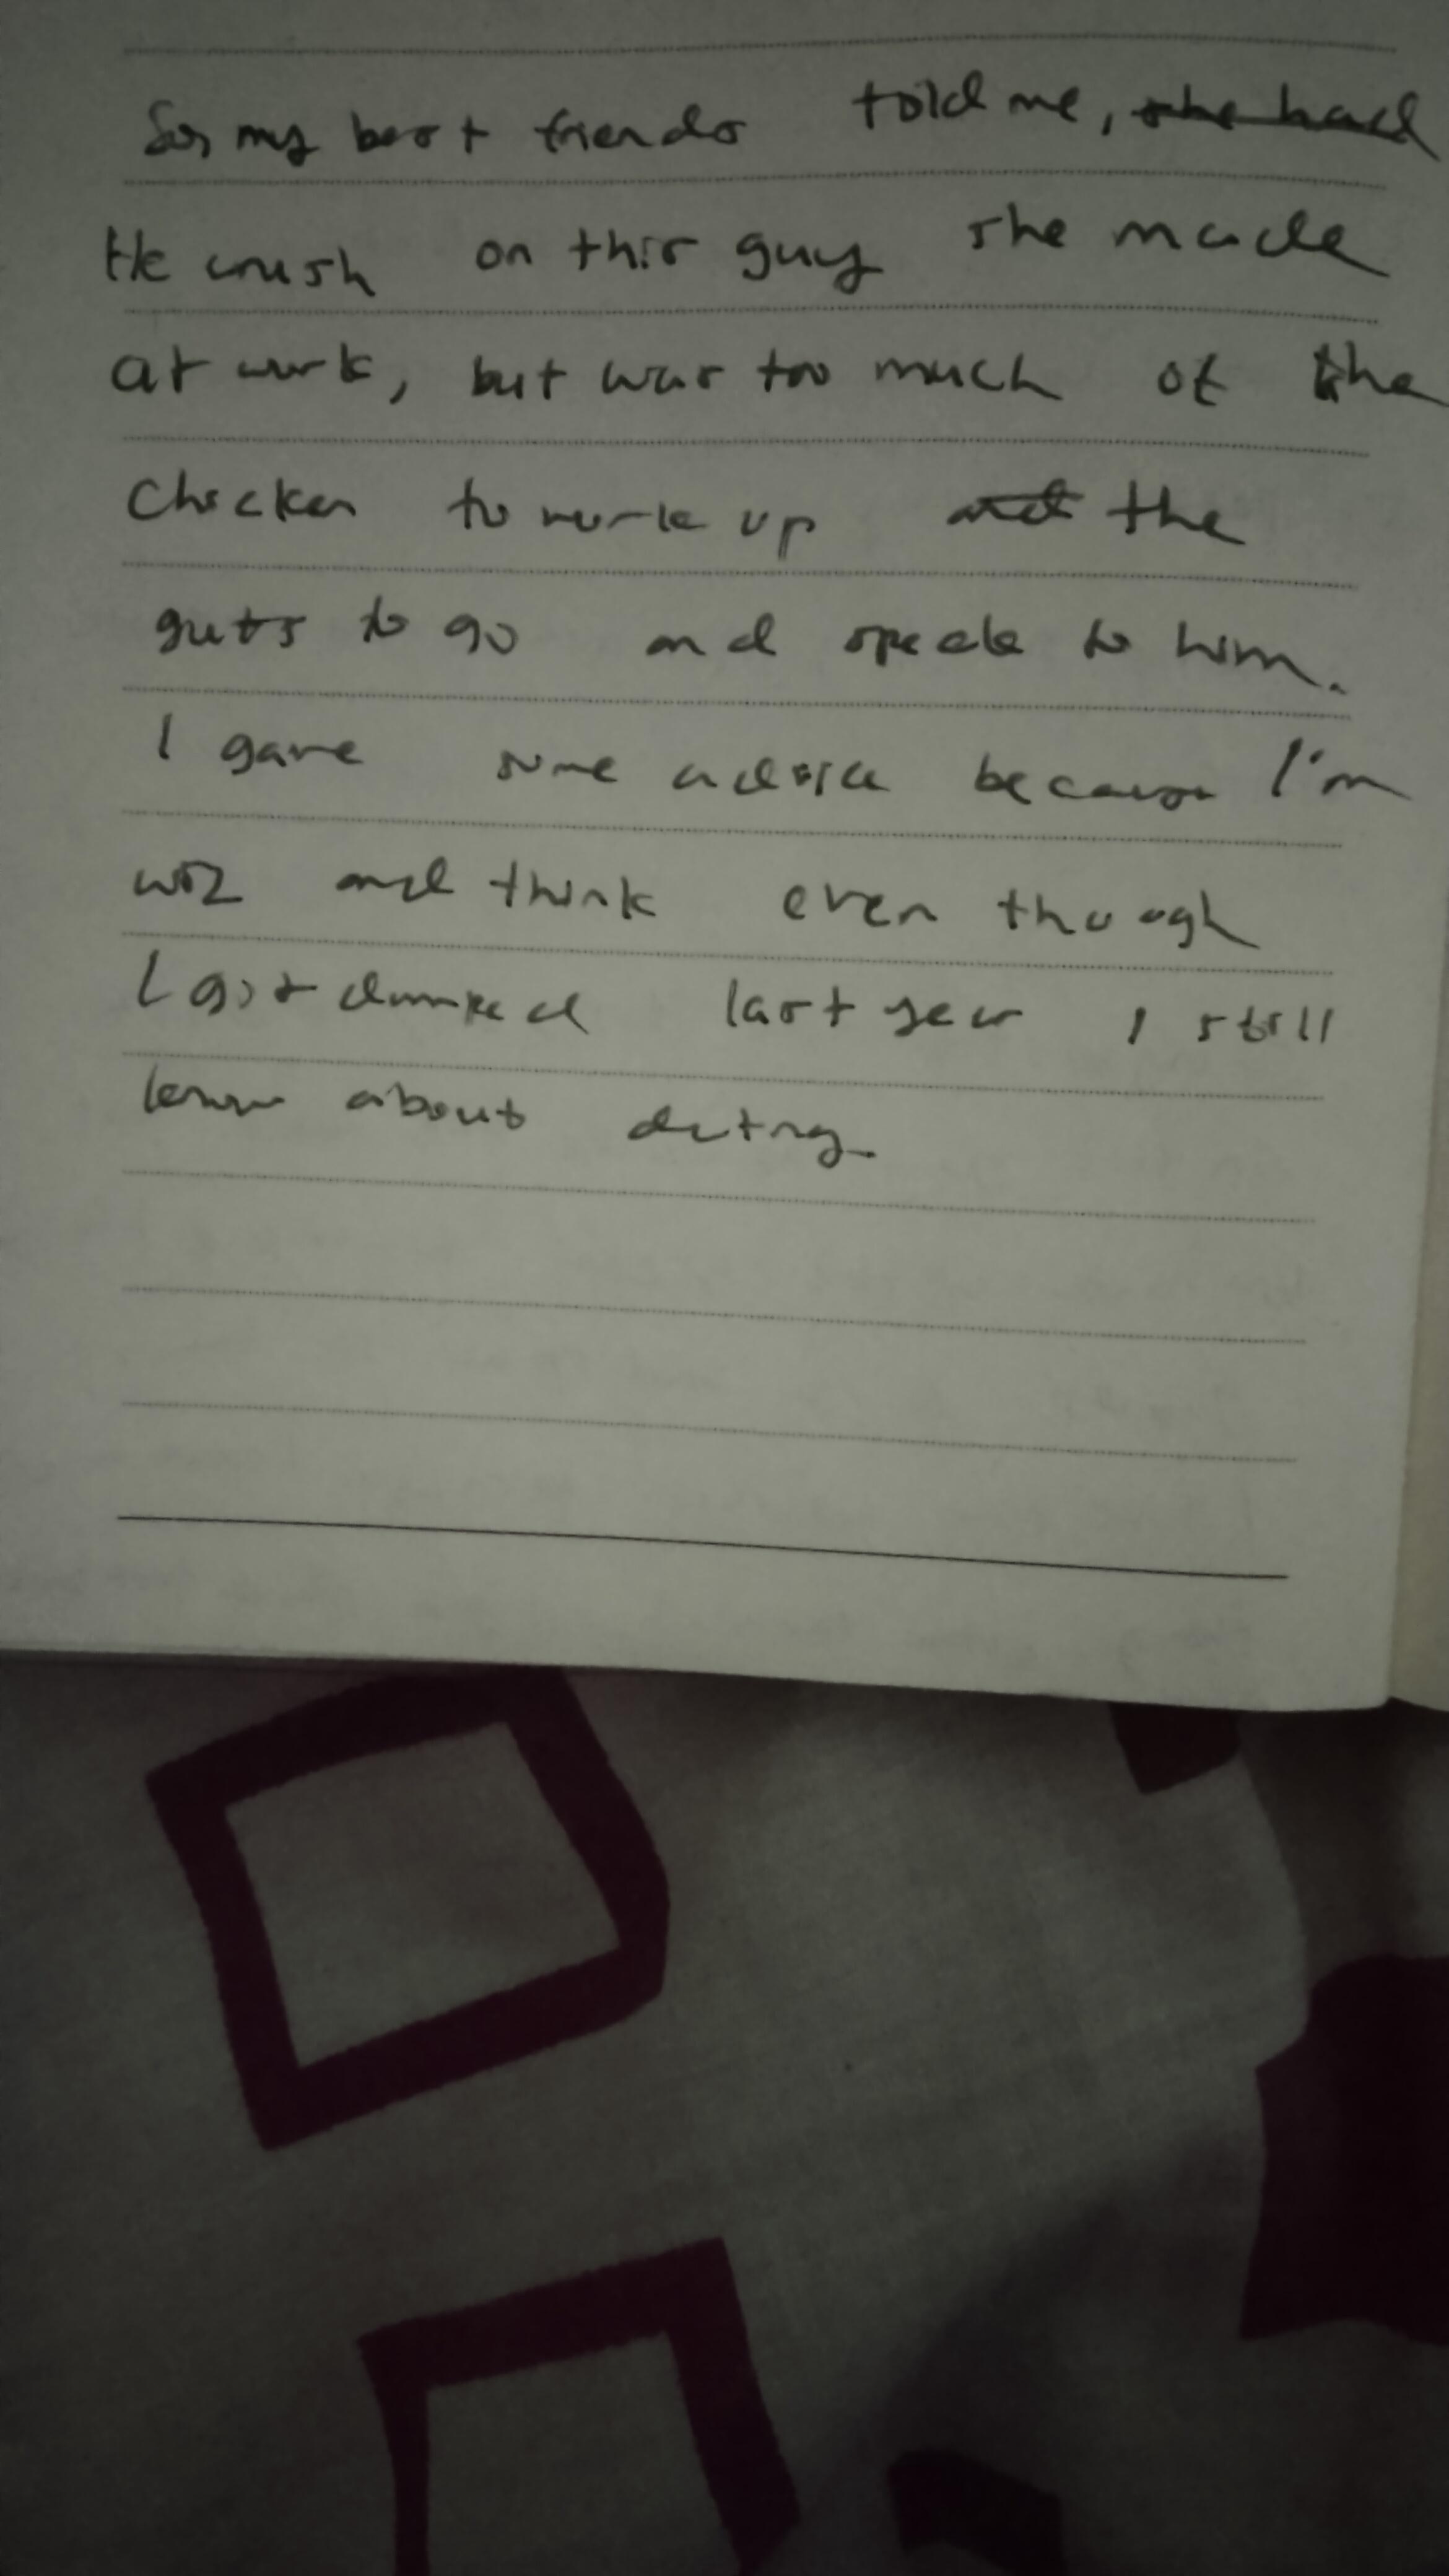 So, my best friends told me, she had
the crush on this guy she made
at work, but was too much of the
chicken to work up and the
guts to go and speak to him.
I gave some advice because I'm
wiz and think even though
I got dumped last year I still
know about dating.